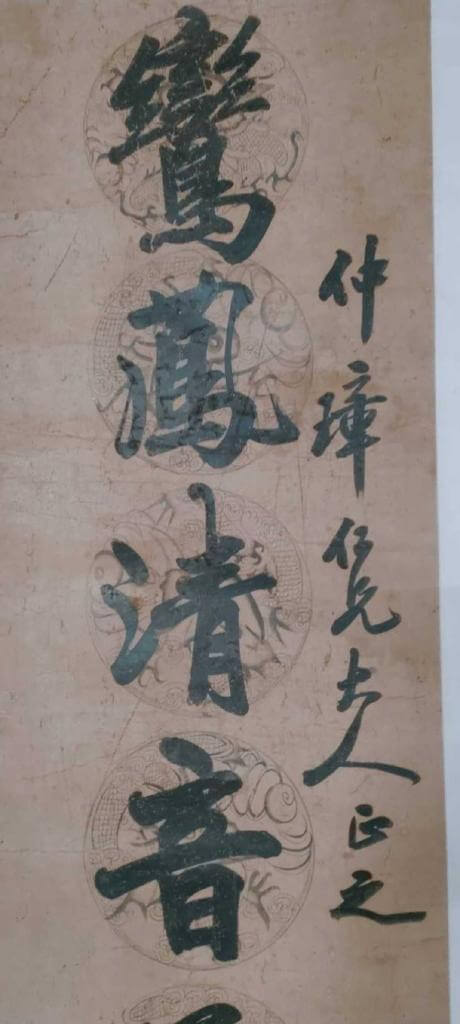 仲璋仁兄大人正之
鸞鳳清音